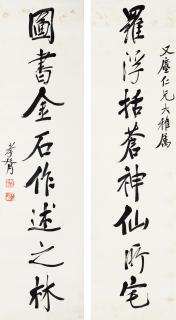 又塵仁兄大雅属
羅浮括蒼神仙所宅
圖書金石作述之林